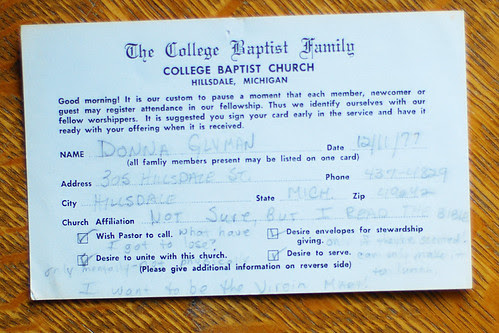 The College Baptist Family
COLLEGE BAPTIST CHURCH
HILLSDALE, MICHIGAN
Good morning! It is our custom to pause a moment that each member, newcomer or
guest may register attendance in our fellowship. Thus we identify ourselves with our
fellow worshippers. It is suggested you sign your card early in the service and have it
ready with your offering when it is received.
NAME DONNA Date 12/11/77
(all famliy members present may be listed on one card)
Address 305 HILLSDALE ST. Phone 437-4329
City HILLSDALE State MICH. Zip 49242
Church Affiliation NOT Sure, BUT I READ THE BIBLE
Wish Pastor to call. What have I got to lose?
Desire envelopes for stewardship giving. only if
Desire to unite with this church. only
Desire to serve. can only make it to lunch.
(Please give additional information on reverse side)
I want to be the Virgin Mary!